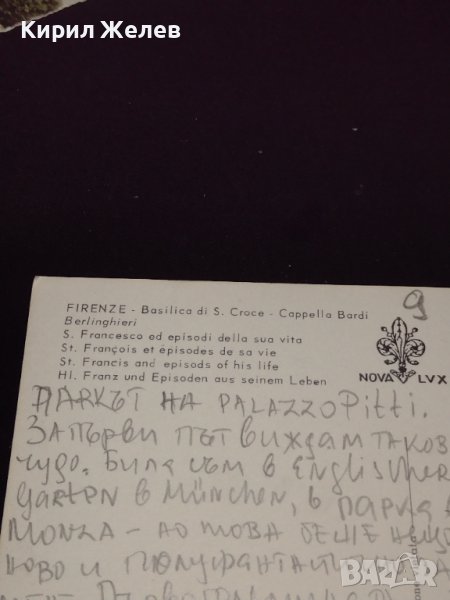 Кирил Желев
9
FIRENZE - Basilica di S. Croce - Cappella Bardi
Berlinghieri
S. Francesco ed episodi della sua vita
St. François et épisodes de sa vie
St. Francis and episods of his life
Hl. Franz und Episoden aus seinem Leben
NOVA LVX
ПАРКЪТ НА PALAZZO Pitti.
ЗА ПЪРВИ ПЪТ ВИЖДАМ ТАКОВ
ЧУДО. БИЛА СЪМ В ENGLISCHER
GARTEN В MÜNCHEN, В ПАРКА
MONZA – НО ТОВА БЕШЕ НЕЩО
НОВО И
BAZAR
bg